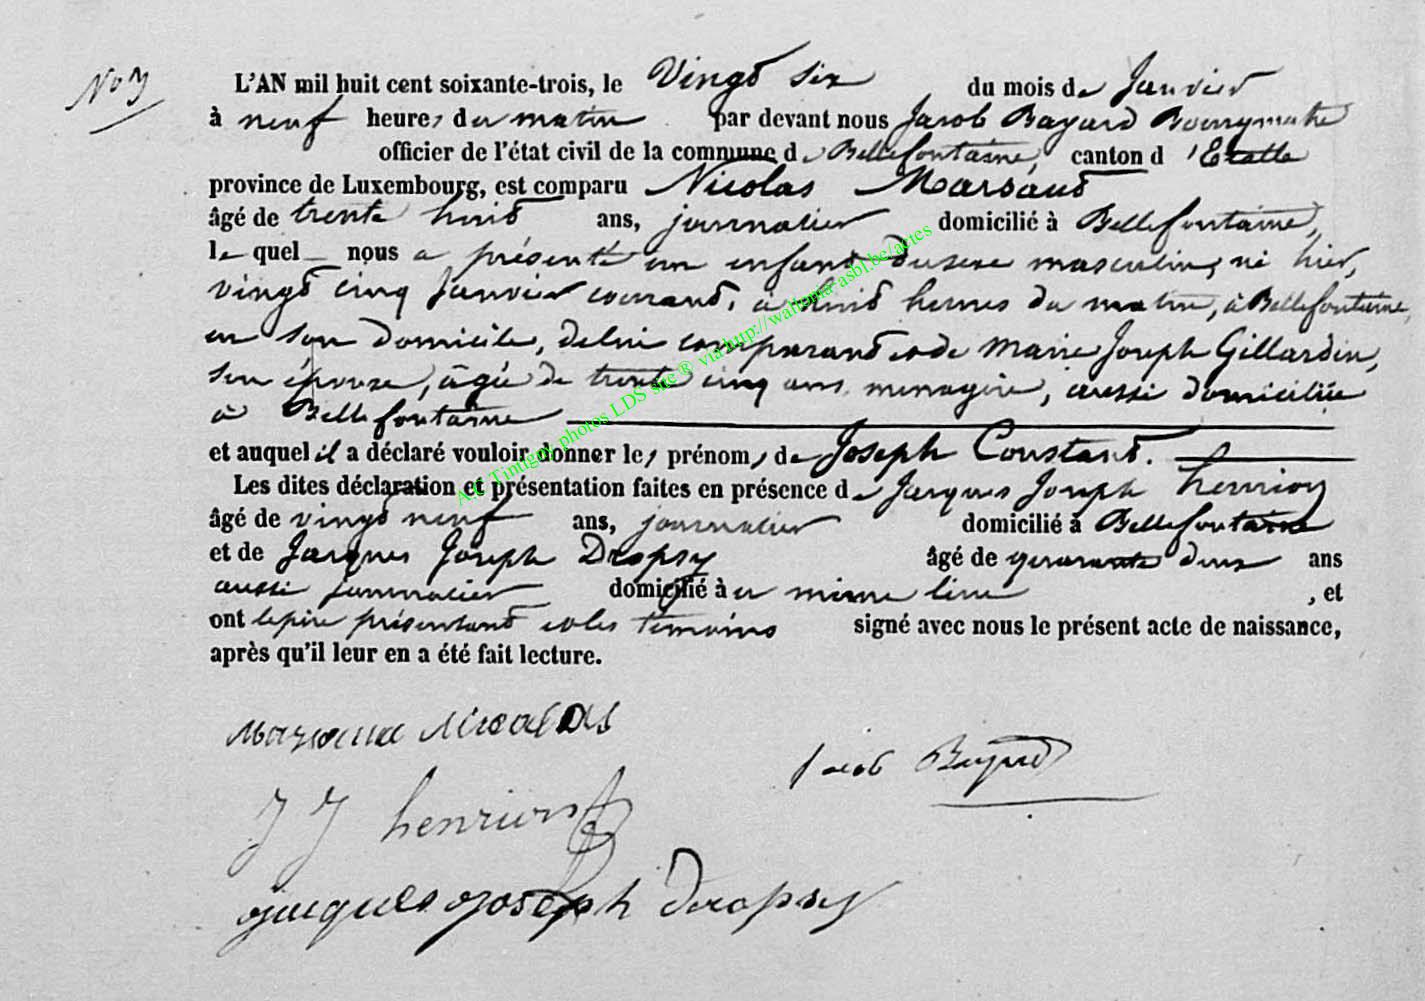 No 3
L'AN mil huit cent soixante-trois, le Vingt six du mois de Janvier
à neuf heures du matin par devant nous Jacob Bayard Bourgmestre
officier de l'état civil de la commune de Bellefontaine, canton d'Etalle
province de Luxembourg, est comparu Nicolas Marsaud
âgé de trente huit ans, journalier domicilié à Bellefontaine,
lequel nous a présenté un enfant du sexe masculin, né hier,
vingt cinq Janvier courant, à huit heures du matin, à Bellefontaine,
en son domicile, de lui comparant et de Marie Joseph Gillardin,
son épouse, âgée de trente cinq ans, menagère, aussi domiciliée
à Bellefontaine
et auquel il a déclaré vouloir donner les prénoms de Joseph Constant.
Les dites déclaration et présentation faites en présence de Jacques Joseph henrion
âgé de vingt neuf ans, journalier domicilié à Bellefontaine
et de Jacques Joseph Dropsy âgé de quarante deux ans
aussi journalier domicilié au même lieu, et
ont le père présentant et les témoins signé avec nous le présent acte de naissance,
après qu'il leur en a été fait lecture.
Nicolas
Jacob Bayard
J J henrion
jacques joseph dropsy
A.C Tintigny photos LDS site ® via http://wallonia-asbl.be/actes